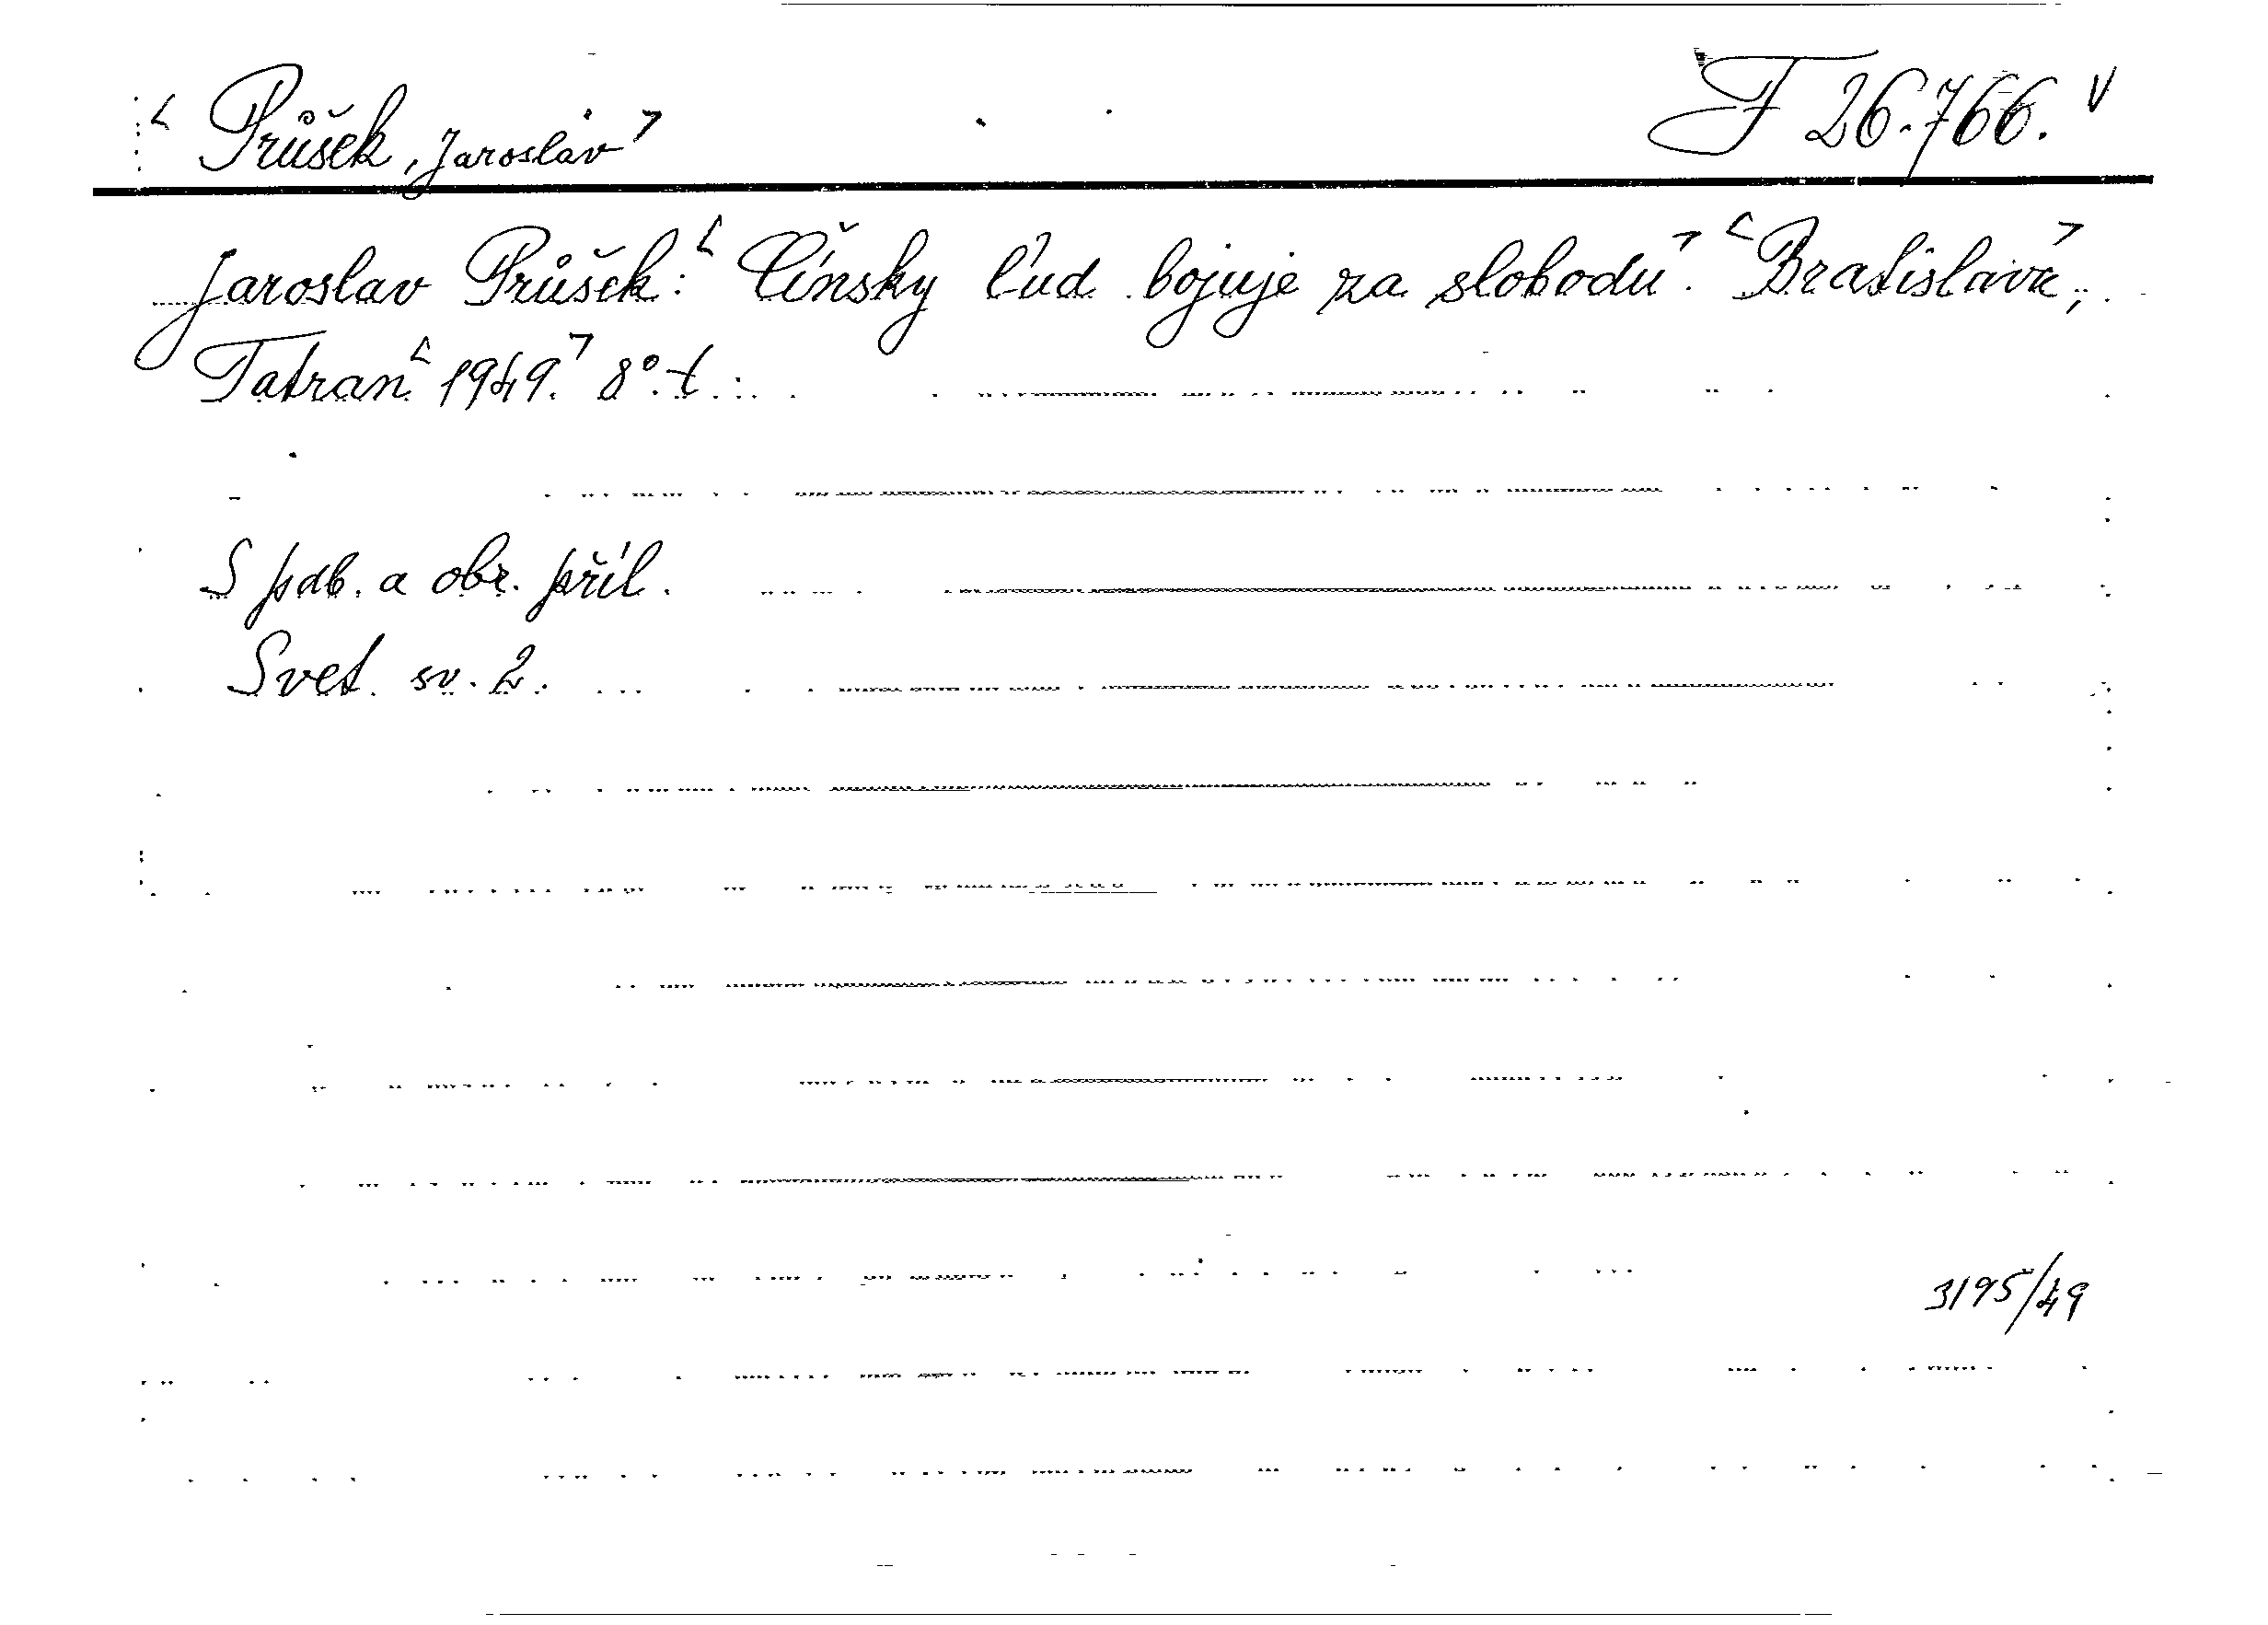 Průšek, Jaroslav F 26.766.
Jaroslav Průšek: Čínsky ľud bojuje za slobodu. Bratislava,
Tatran 1949. 8°. t.
S pdb. a obr. příl.
Svet. sv. 2.
3195/49